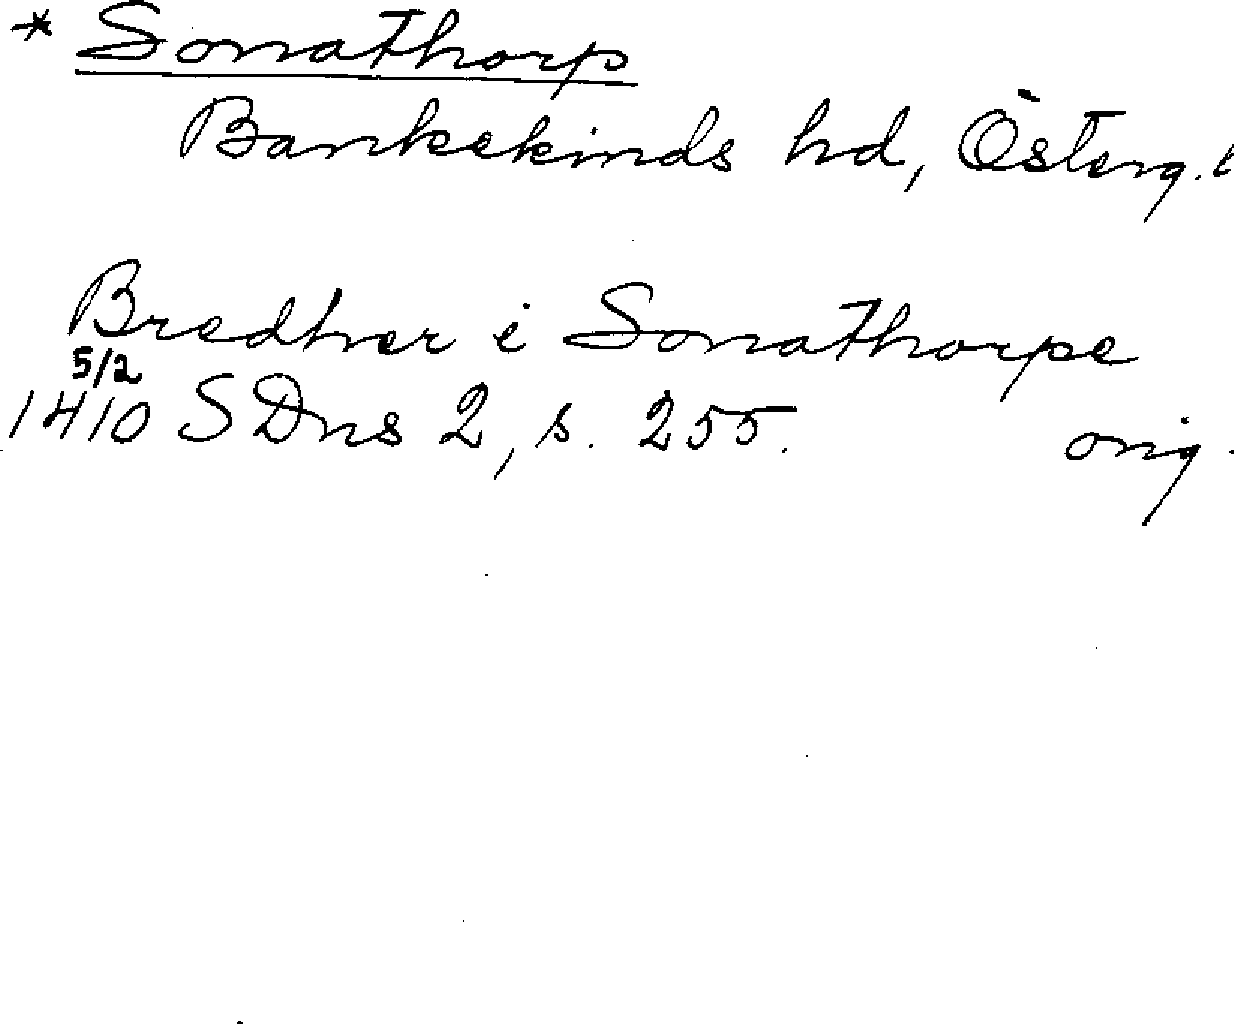 * Sonathorp
Bankekinds hd, Österg. l
Bredher i Sonathorpe
5/2
1410 SDns 2, s. 255. orig.